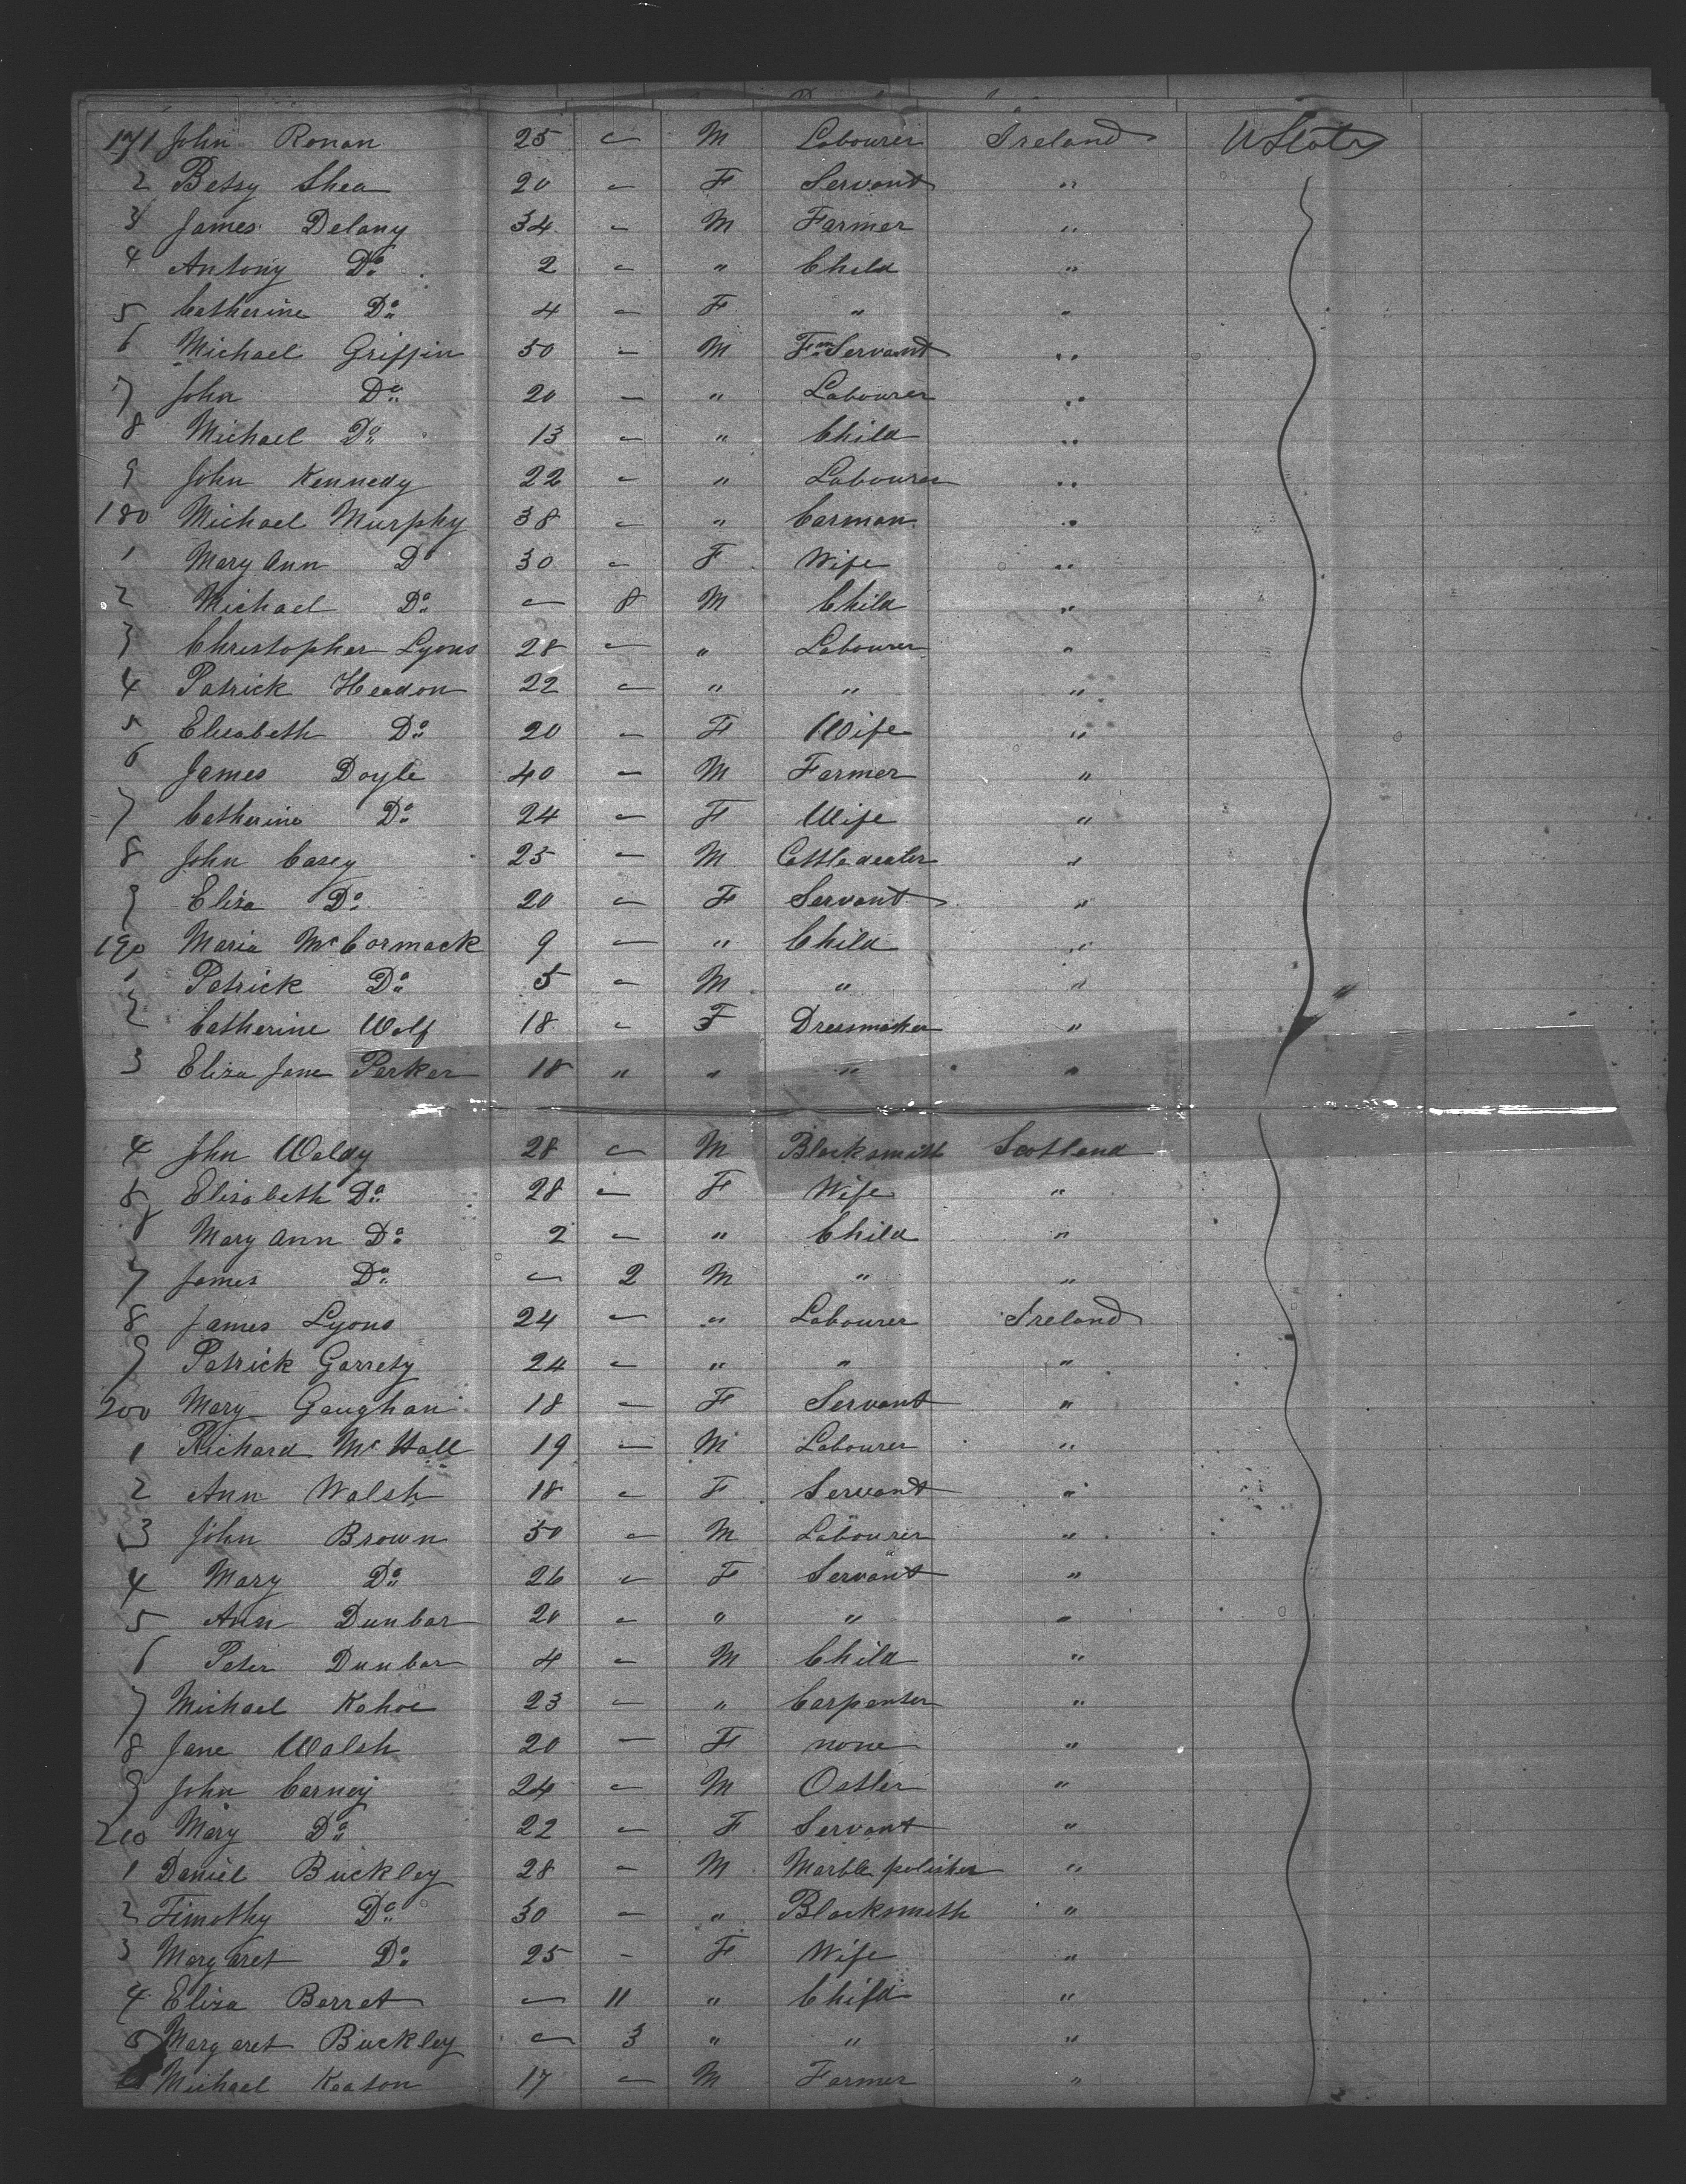 171 John Ronan 25 – M Labourer Ireland U States
2 Betsy Shea 20 – F Servant "
3 James Delany 34 – M Farmer "
4 Antony Do 2 – " Child "
5 Catherine Do 4 – F " "
6 Michael Griffin 50 – M Fm Servant "
7 John Do 20 – " Labourer "
8 Michael Do 13 – " Child "
9 John Kennedy 22 – " Labourer "
180 Michael Murphy 38 – " Carman "
1 Mary Ann Do 30 – F Wife "
2 Michael Do – 8 M Child "
3 Christopher Lyons 28 – " Labourer "
4 Patrick Headon 22 – " " "
5 Elisabeth Do 20 – F Wife "
6 James Doyle 40 – M Farmer "
7 Catherine Do 24 – F Wife "
8 John Casey 25 – M Cattle dealer "
9 Eliza Do 20 – F Servant "
190 Maria McCormack 9 – " Child "
1 Patrick Do 5 – M " "
2 Catherine Wolf 18 – F Dressmaker "
3 Eliza Jane Parker 18 " " " "
4 John Waldy 28 – M Blacksmith Scotland
5 Elisabeth Do 28 – F Wife "
6 Mary Ann Do 2 – " Child "
7 James Do – 2 M " "
8 James Lyons 24 – " Labourer Ireland
9 Patrick Garrety 24 – " " "
200 Mary Gaughan 18 – F Servant "
1 Richard McHall 19 – M Labourer "
2 Ann Walsh 18 – F Servant "
3 John Brown 50 – M Labourer "
4 Mary Do 26 – F Servant "
5 Ann Dunbar 20 – " " "
6 Peter Dunbar 4 – M Child "
7 Michael Kehoe 23 – " Carpenter "
8 Jane Walsh 20 – F none "
9 John Carney 24 – M Ostler "
210 Mary Do 22 – F Servant "
1 Daniel Buckley 28 – M Marble polisher "
2 Timothy Do 30 – " Blacksmith "
3 Margaret Do 25 – F Wife "
4 Eliza Barret – 11 " Child "
5 Margaret Buckley – 3 " " "
6 Michael Keaton 17 – M Farmer "